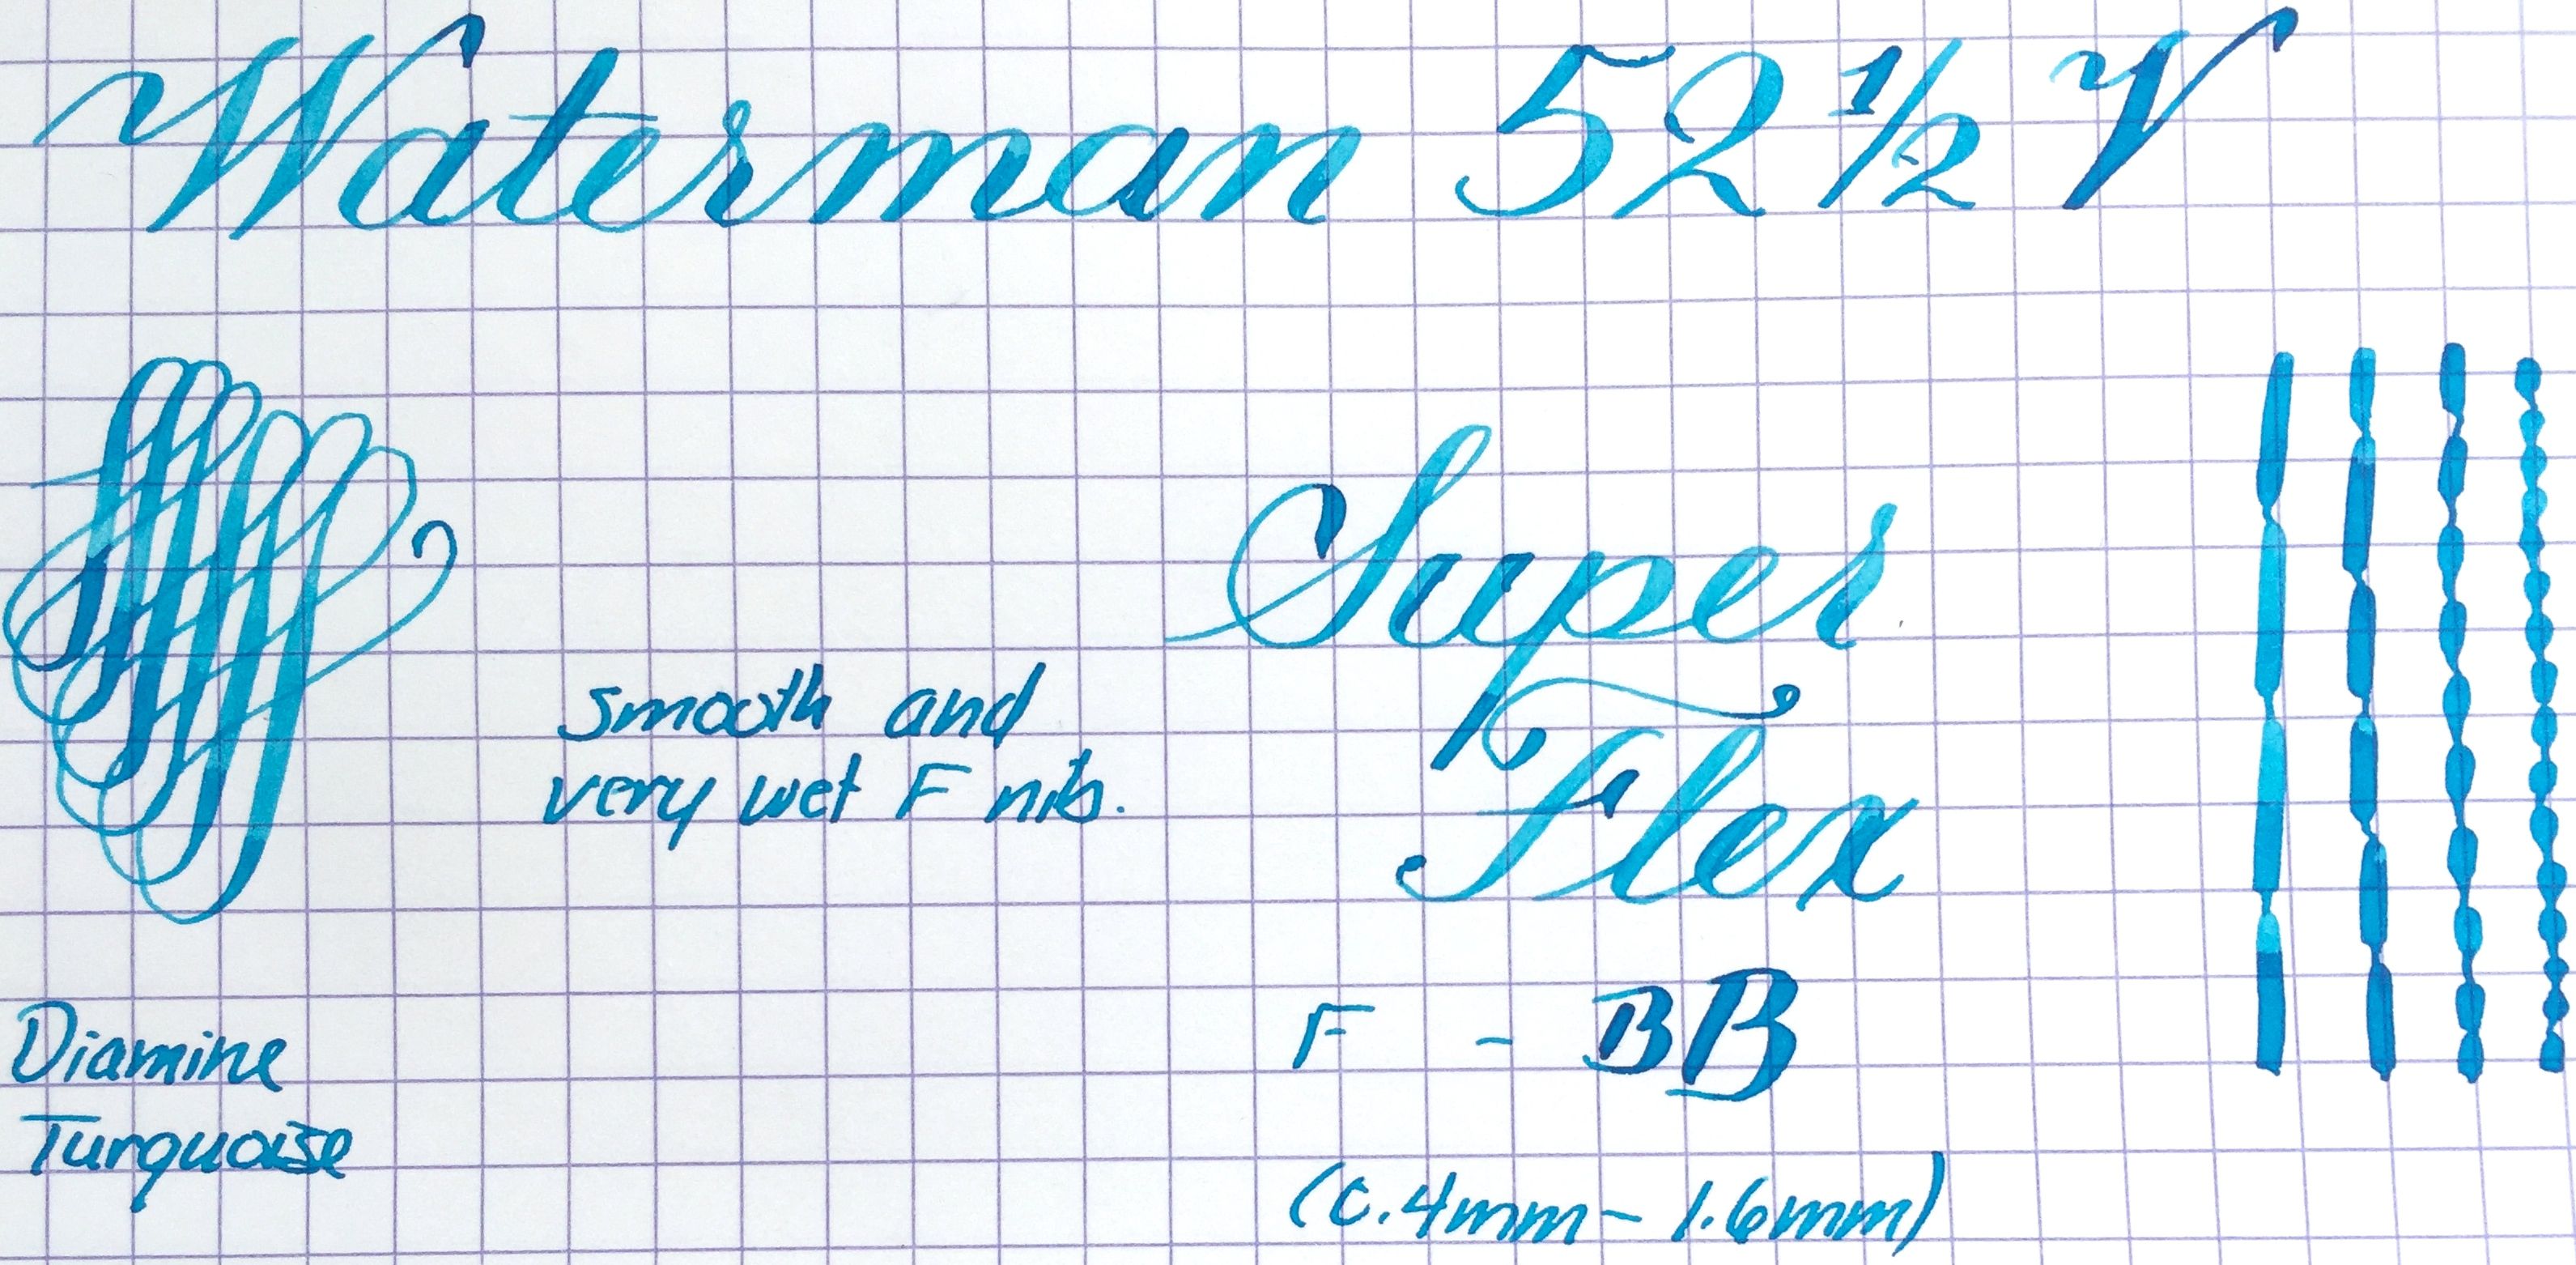 Waterman 52 1/2 V
Super
smooth and
very wet F nib.
Flex
F - BB
Diamine
Turquoise
(0.4mm - 1.6mm)